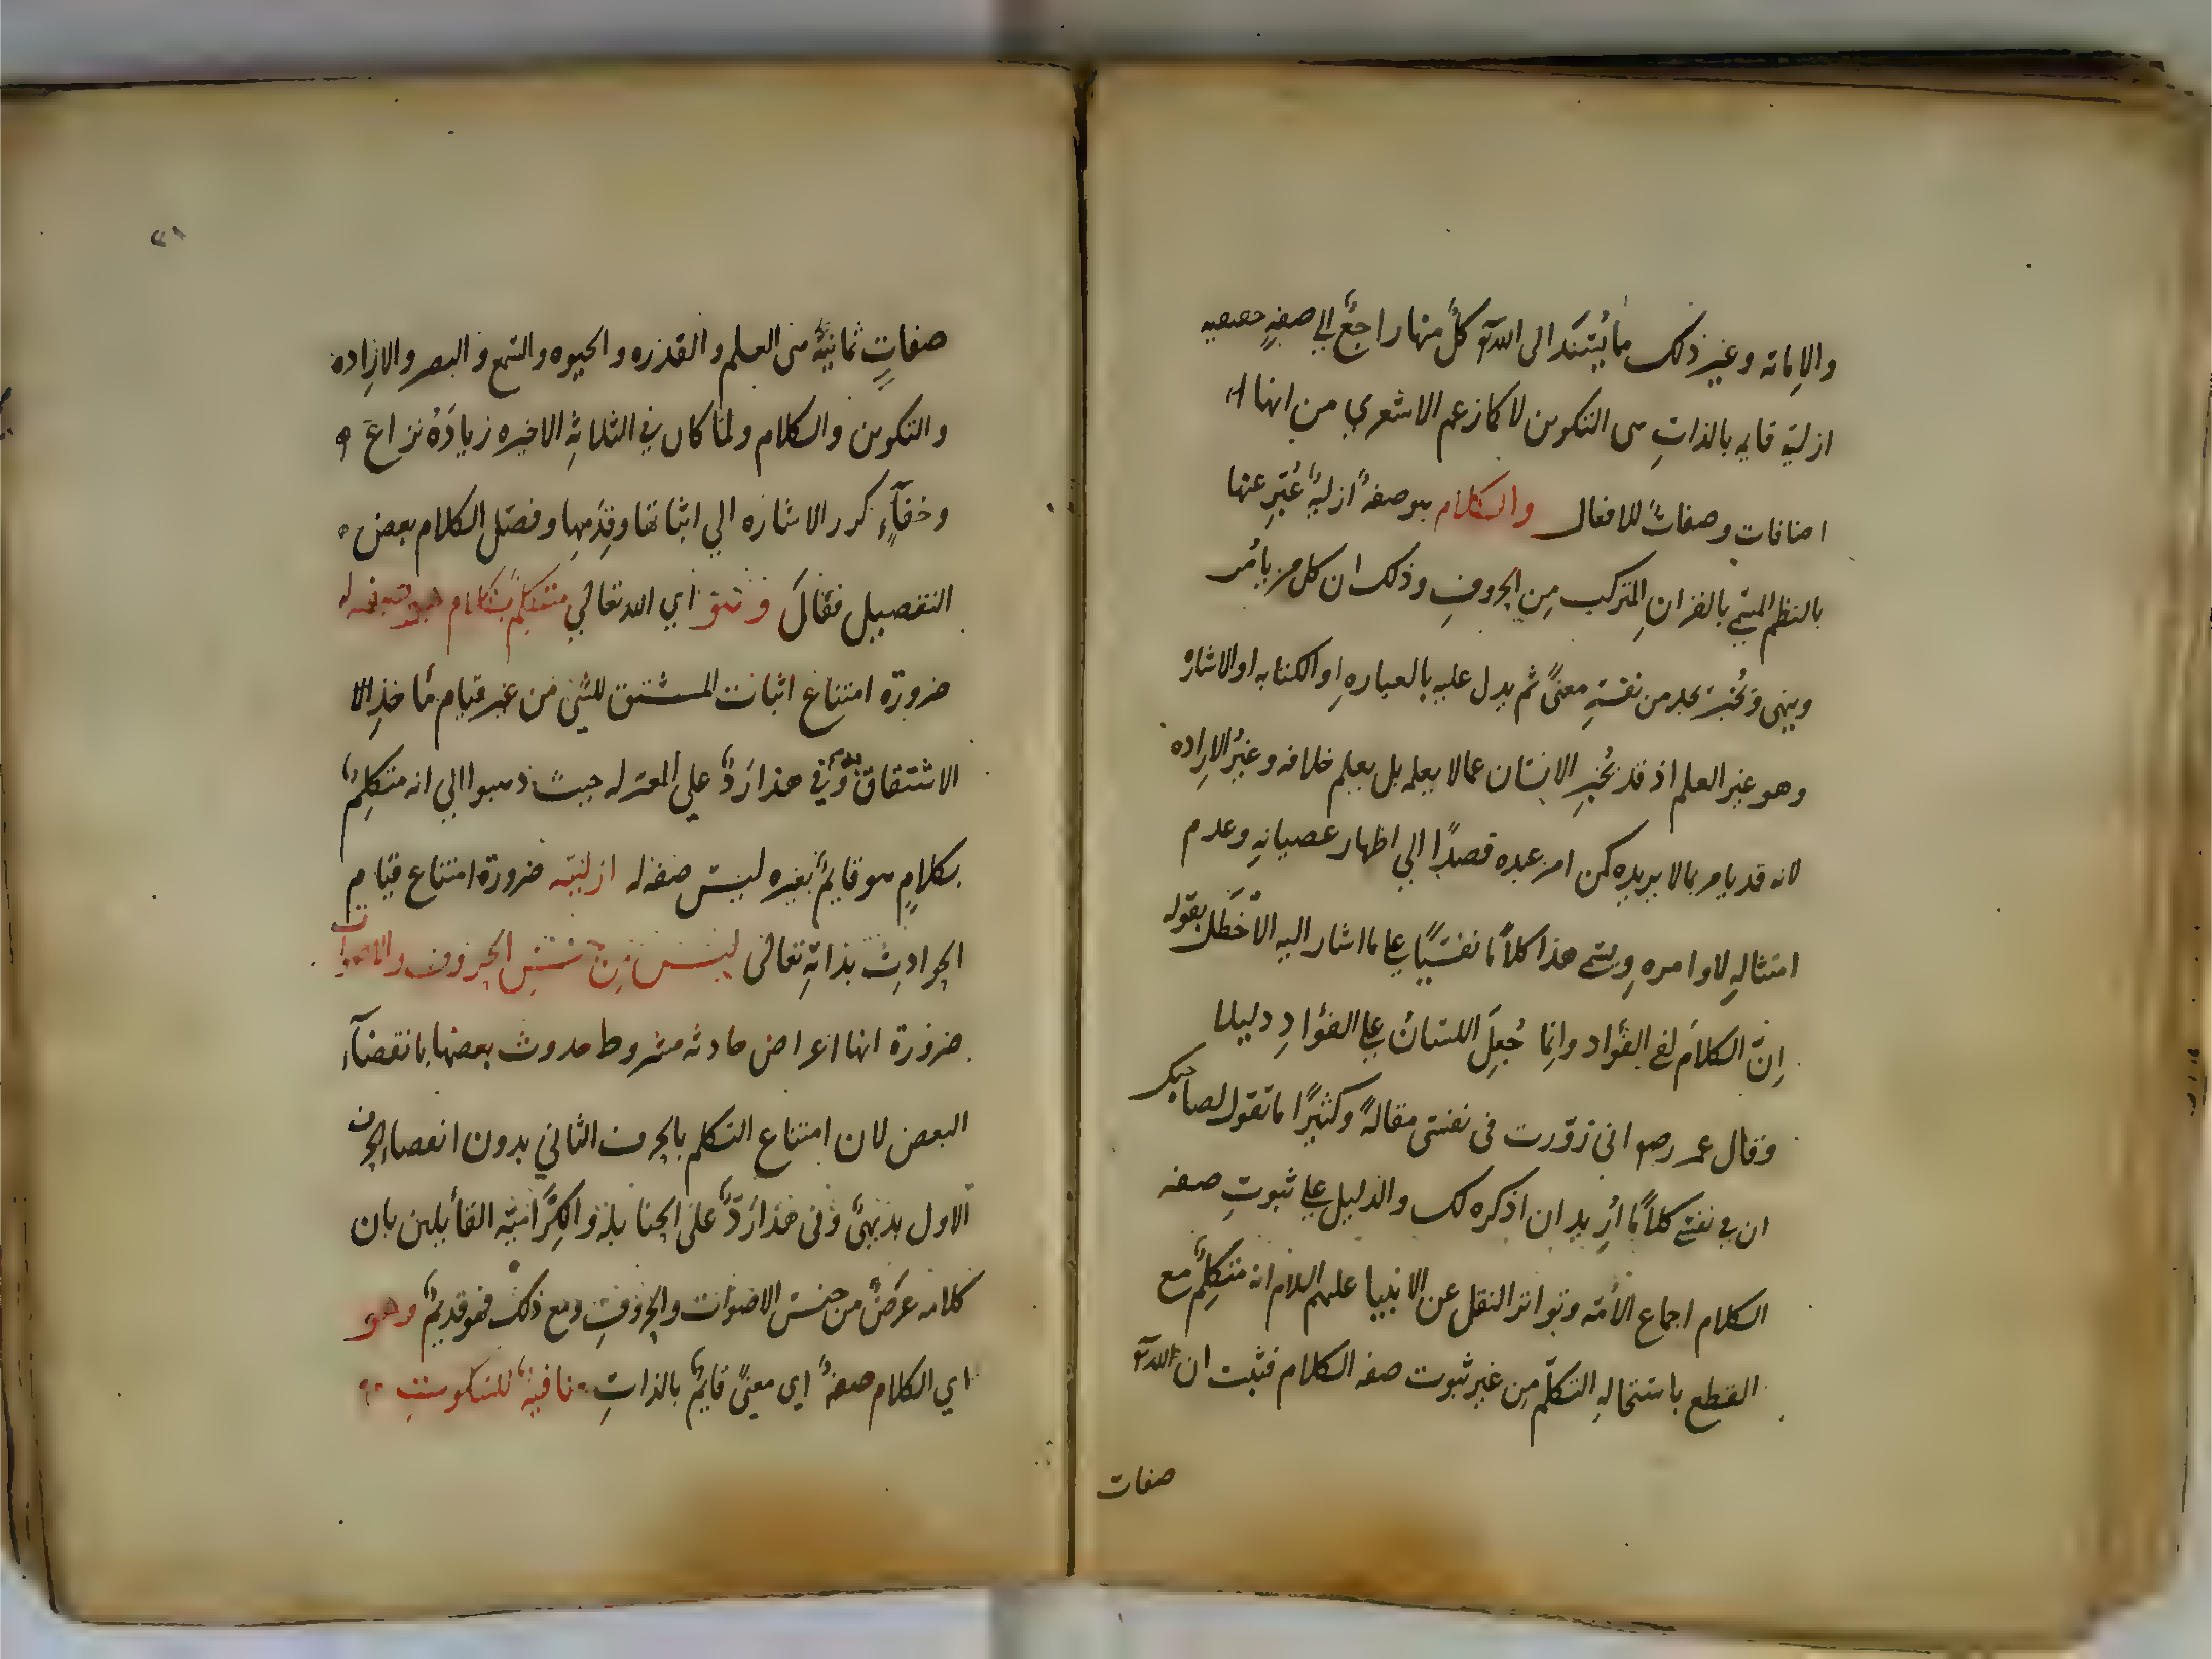 والاماته وغير ذلك مما يُسْنَد الى الله تع كلٌّ منها راجعٌ الي صفةٍ حقيقيه
ازلية قايمه بالذاتِ هى التكوين لا كما زعم الاشعري من انها
اضافات وصفاتٌ للافعال والكلام هو صفةٌ ازليةٌ عُبّرِ عنها
بالنظم المسمّي بالقرانِ المتركب مِن الحروفِ وذلك ان كل من يامُر
وينهى ويُخبر يجد من نفسهِ معنيً ثم يدل عليه بالعباره او الكتابه او الاشارة
وهو غير العلم اذ قد يُخبرِ الانسان عما لا يعلمه بل يعلم خلافه وغيرُ الارِاده
لانه قد يامر بما لا يريده كمن امر عبده قصدًا الي اظهار عصيانهِ وعدم
امتثالهِ لاوامره ويسمي هذا كلاًما نفسيًّا علي ما اشار اليه الاَخطَل بقوله
اِنّ الكلامَ لفي الفؤاد وانِما جُعِلَ اللسَانُ علي الفؤادِ دليلا
وقال عمر رضه انى زوّرت فى نفسى مقالهً وكثيرًا ما تقول لصاحبك
ان في نفسي كلاًما ارُيد ان اذكره لك والدليل علي ثبوتِ صفه
الكلام اجماع الاُمّه وتواتر النقل عن الانبيا عليهم السلام انه متكلِّمٌ مع
القطع باستحالهِ التكلّم مِن غير ثبوت صفه الكلام فثبت ان لله تع
صفات
٢١
صفاتٍ ثمانيةً هى العلم والقدره والحيوه والسمع والبصر والارِاده
والتكوين والكلام ولما كان في الثلاثةِ الاخيره زيادَةُ نزاع
وخفآءٍ كرر الاشاره الي اثباتها وقِدَمِها وفصّل الكلام بعض
التفصيل فقالَ وهو اي الله تعالي متكلِمٌ بكلام هو صفه له
ضرورة امتناع اثبات المشتق للشئ من غير قيام مأخذِ
الاشتقاق به وفي هذا رَدٌّ على المعتزله حيث ذهبوا الي انه متكلِمٌ
بكلامٍ هو قايمٌ بغيره ليسَ صفة له ازليّه ضرورة امتناع قيام
الحوادِث بذاتهِ تعالى ليس مِن جنسِ الحروف والاصوات
ضرورة انها اعراض حادثه مشروط حدوث بعضها بانقضآء
البعض لان امتناع التكلم بالحرف الثاني بدون انقضاء الحرف
الاول بديهيٌّ وفى هذا رَدٌّ على الحنابلة والكِرَّاميّه القائلين بان
كلامه عَرَضٌ من جنس الاصوات والحروفِ ومع ذلك فهو قديمٌ وهو
اي الكلام صفةٌ اي معنيً قايمٌ بالذاتِ منافيةٌ للسكوتِ